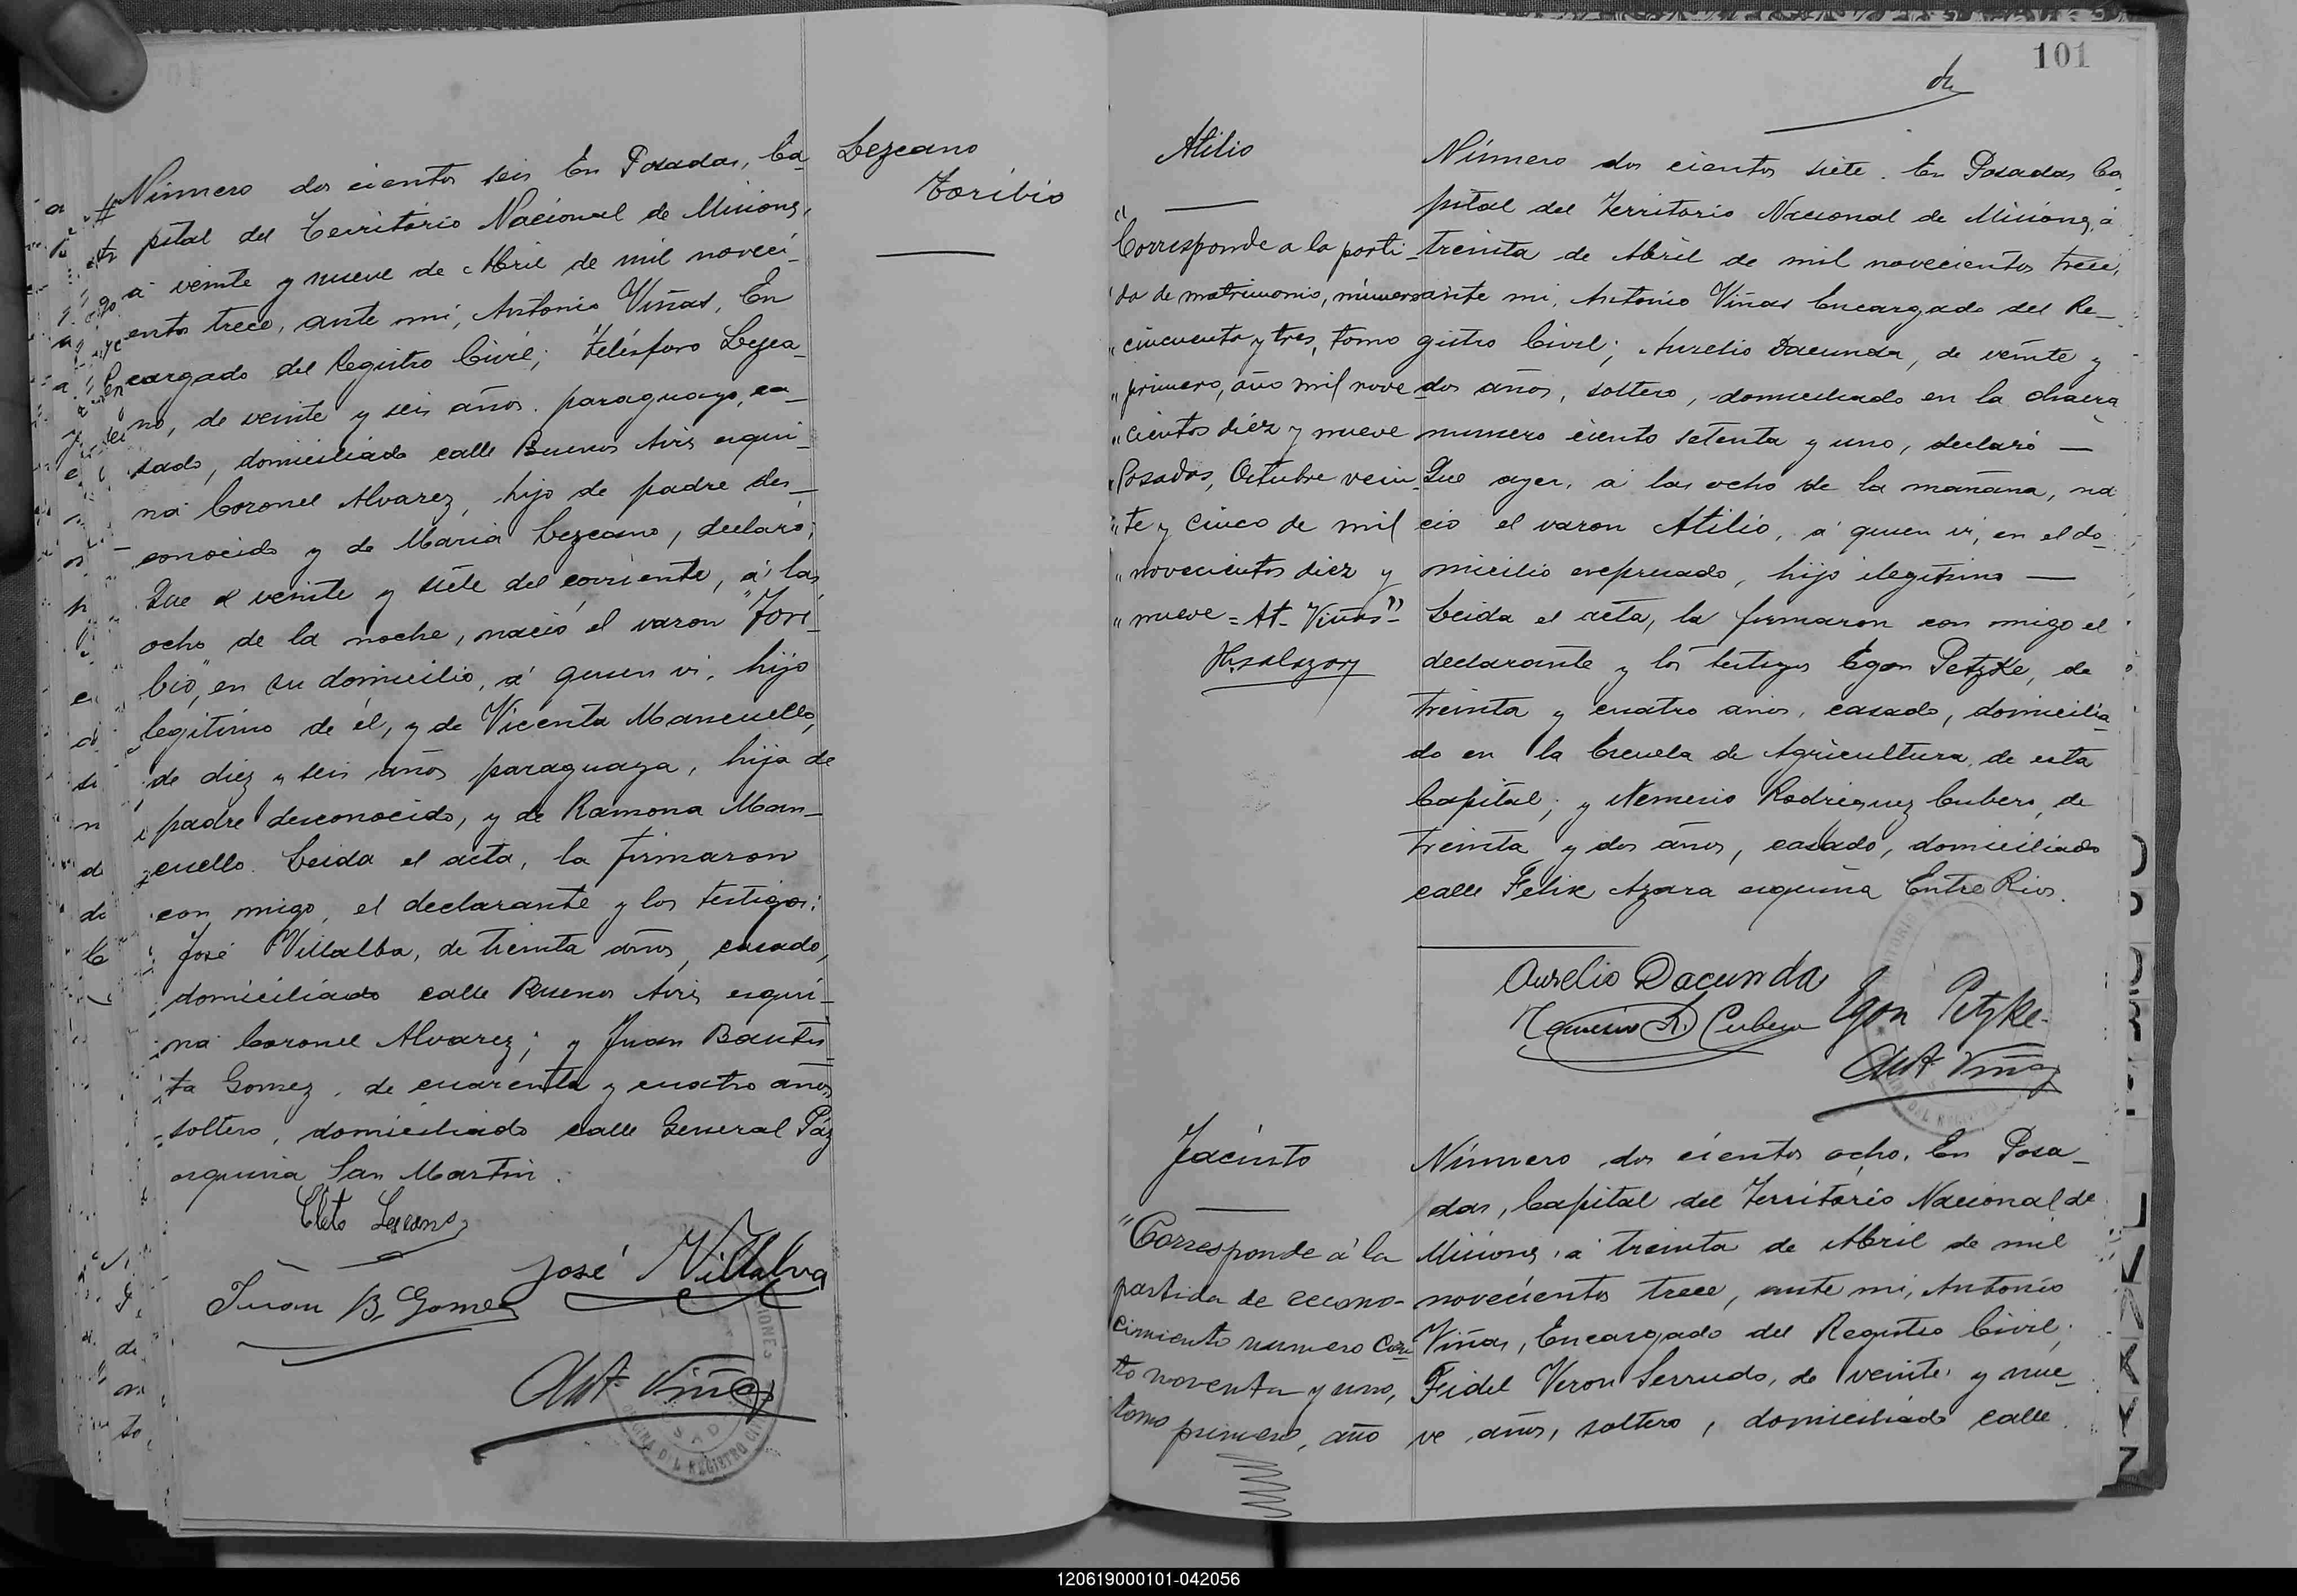 Número dos cientos seis En Posadas, Ca-
pital del Territorio Nacional de Misiones,
á veinte y nueve de Abril de mil noveci-
entos trece, ante mi, Antonio Viñas, En
cargado del Registro Civil; Telésforo Lezca-
no, de veinte y seis años, paraguayo, ca-
sado, domiciliado calle Buenos Aires esqui-
na Coronel Alvarez, hijo de padre des-
conocido y de Maria Lezcano, declaró;
Que el veinte y siete del corriente, á las
ocho de la noche, nació el varon "Tori-
bio", en su domicilio, á quien vi, hijo
legitimo de él, y de Vicenta Mancuello,
de diez y seis años paraguaya, hija de
padre desconocido, y de Ramona Man-
cuello. Leida el acta, la firmaron
con migo, el declarante y los testigos:
José Villalba, de treinta años, casado,
domiciliado calle Buenos Aires esqui-
na Coronel Alvarez; y Juan Bautis-
ta Gomez, de cuarenta y cuatro años
soltero, domiciliado calle General Paz
esquina San Martin.
Cleto Lescano
José Villalva
Juan B. Gomez
Ant. Viñas
Lezcano
Toribio
101
Atilio
"Corresponde a la parti-
"da de matrimonio, número
"cincuenta y tres, tomo
"primero, año mil nove
"cientos diéz y nueve
"Posadas, Octubre vein-
"te y cinco de mil
"novecientos diez y
"nueve = At- Viñas"
Número dos cientos siete. En Posadas Ca
pital del Territorio Nacional de Misiones, á
treinta de Abril de mil novecientos trece,
ante mi, Antonio Viñas Encargado del Re-
gistro Civil; Aurelio Dacunda, de veinte y
dos años, soltero, domiciliado en la chacra
numero ciento setenta y uno, declaró —
Que ayer, á las ocho de la mañana, na
ció el varon Atilio, á quien vi, en el do-
micilio expresado, hijo ilegitimo —
Leida el acta, la firmaron con migo el
declarante y los testigos Egon Petzke, de
treinta y cuatro años, casado, domicilia
do en la Escuela de Agricultura, de esta
Capital; y Nemesio Rodriguez Cubero, de
treinta y dos años, casado, domiciliado
calle Felix Azara esquina Entre Rios.
Aurelio Dacunda
Nemesio R. Cubero
Egon Petzke
Ant. Viñas
Jacinto
"Corresponde á la
partida de recono-
cimiento numero cien
to noventa y uno,
tomo primero, año
Número dos cientos ocho. En Posa-
das, Capital del Territorio Nacional de
Misiones, á treinta de Abril de mil
novecientos trece, ante mi, Antonio
Viñas, Encargado del Registro Civil;
Fidel Veron Serrudo, de veinte y nue-
ve años, soltero, domiciliado calle
120619000101-042056